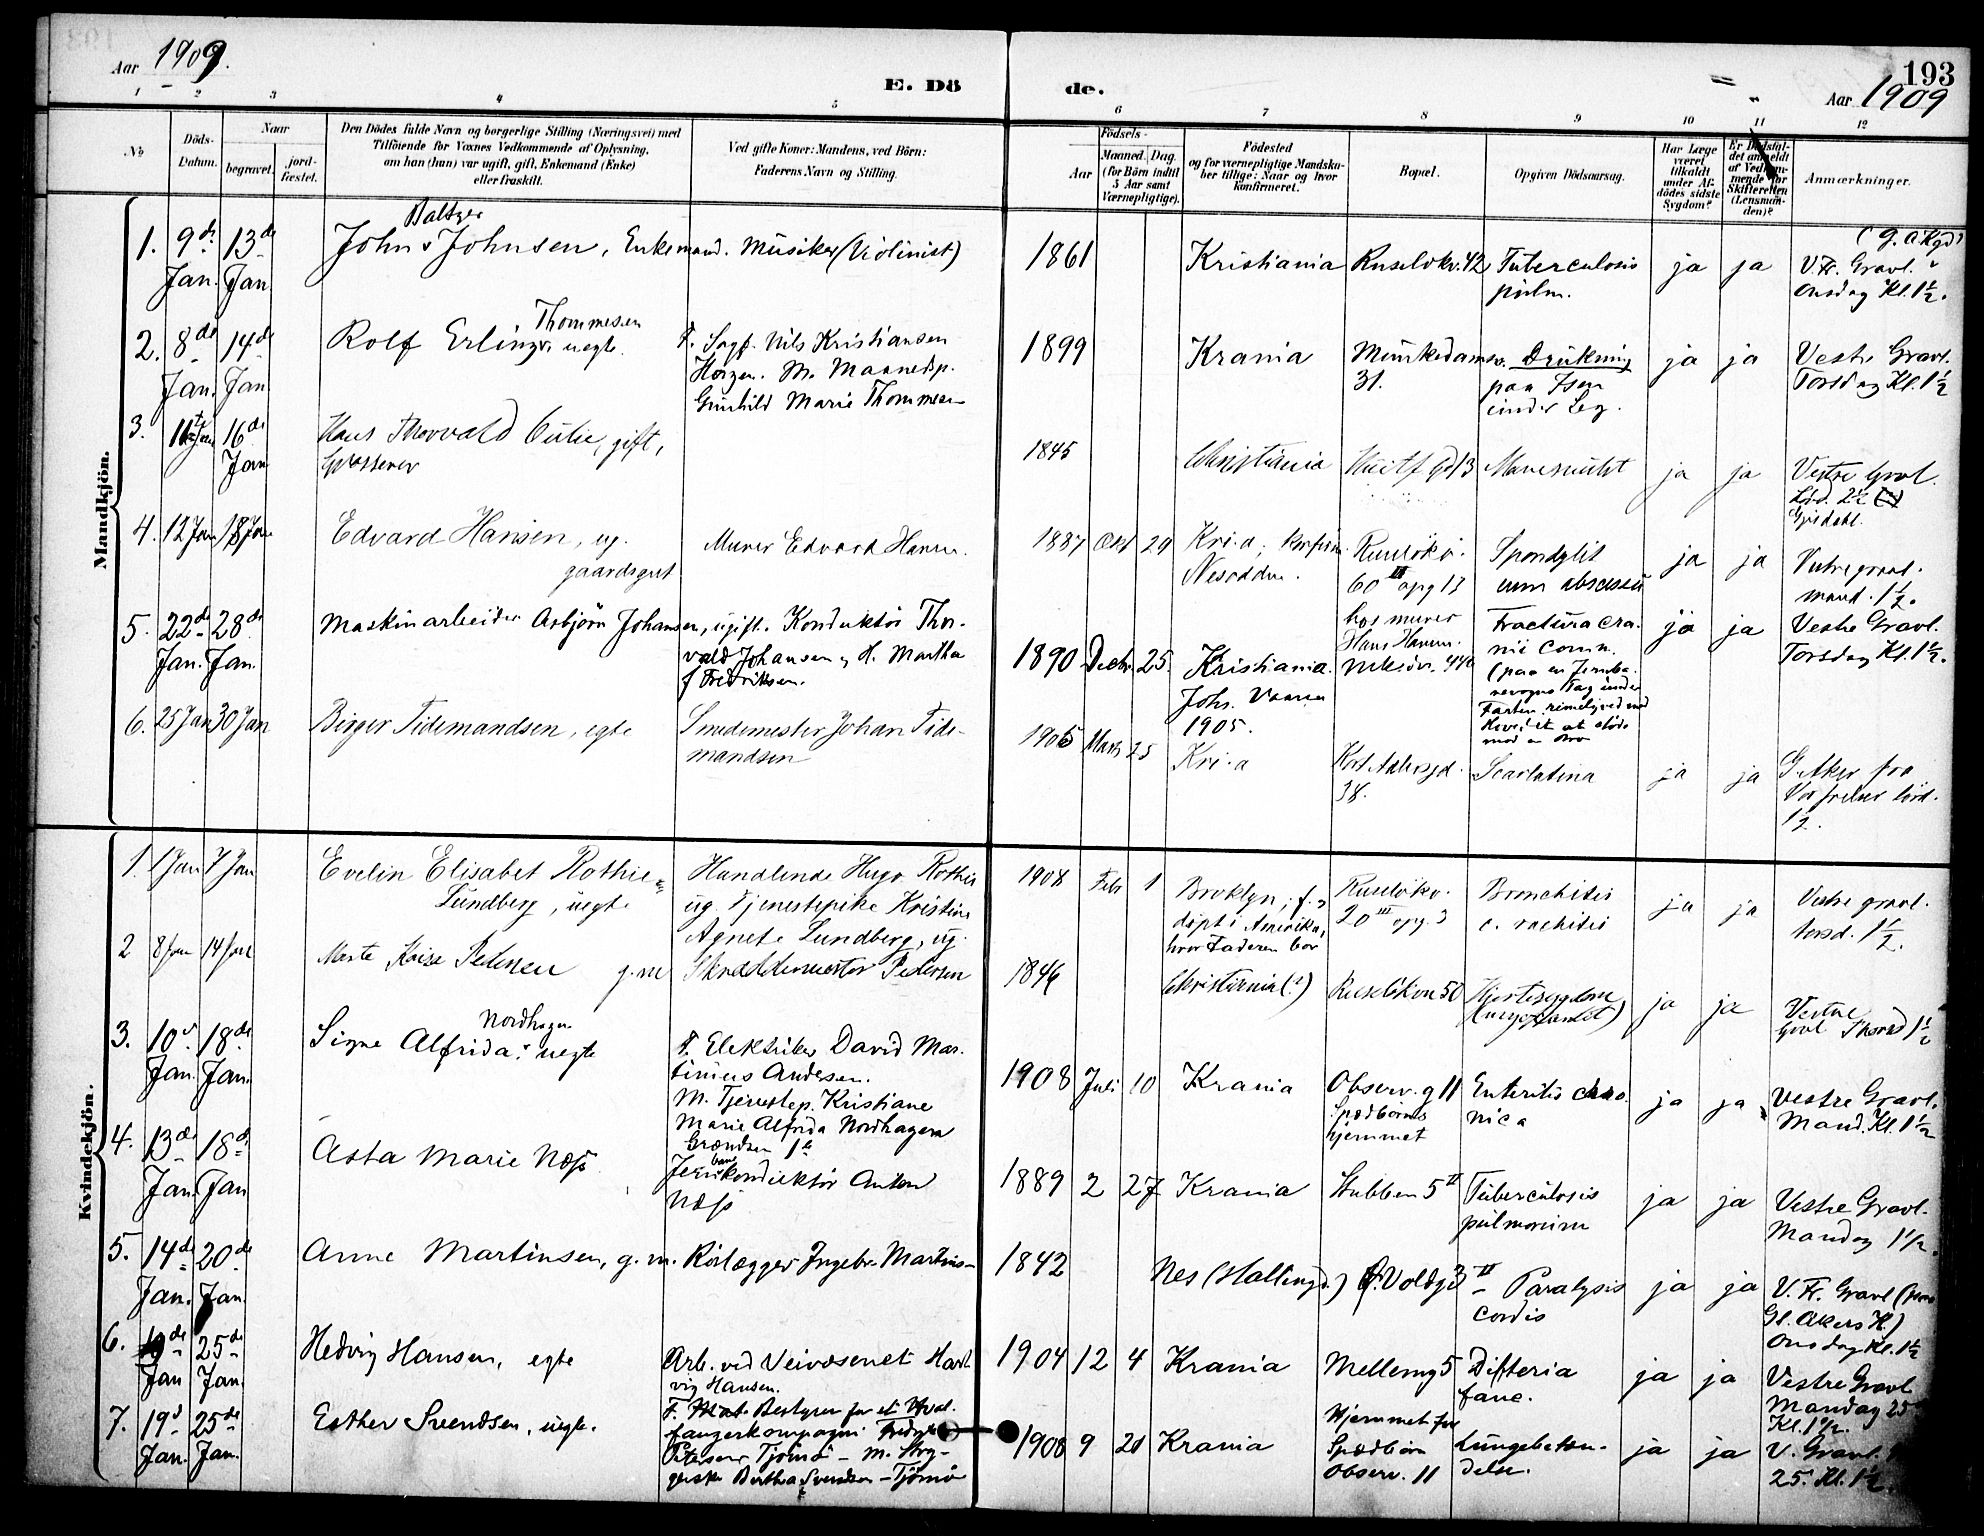 193
Aar 1909.
E. Döde.
Aar 1909
1 2 3 4 5 6 7 8 9 10 11 12
No
Döds-Datum.
Naar
begravet.
jord-fæstet.
Den Dödes fulde Navn og borgerlige Stilling (Næringsvei) med
Tilföiende for Voxnes Vedkommende af Oplysning,
om han (hun) var ugift, gift, Enkemand (Enke)
eller fraskilt.
Ved gifte Koner: Mandens, ved Börn:
Faderens Navn og Stilling.
Födsels-
Aar
Maaned. Dag.
(for Börn indtil
5 Aar samt
Værnepligtige).
Födested
og for værnepligtige Mandska-
ber tillige: Naar og hvor
konfirmeret.
Bopæl.
Opgiven Dödsaarsag.
Har Læge
været
tilkaldt
under Af-
dödes sidste
Sygdom?
Er Dödsfal-
det anmeldt
af Vedkom-
mende for
Skifteretten
(Lensman-
den)?
Anmærkninger.
Mandkjön.
1. 9de Jan. 13de Jan
Baltzer
John Johnsen, Enkemand. Musiker (Violinist)
1861
Kristiania
Ruselökv. 42
Tuberculosis
pulm.
ja ja
V. Fr. Gravl.
Onsdag Kl. 1½.
2. 8de Jan. 14de Jan
Thommesen
Rolf Erling, uegte.
F. Sagf. Nils Kristiansen
M. Maanedsp.
Gunhild Marie Thommesen
1899
Krania
Munkedamsv.
31.
Drukning
paa Isen
under Leg.
ja ja
Vestre Gravl.
Torsdag Kl. 1½
3. 11te Jan 16de Jan
Hans Thorvald, gift,
1845
Christiania
13
ja ja
Vestre Gravl.
Lörd. 2½
4. 12 Jan 18 Jan
Edvard Hansen, ug.
gaardsgut
Murer Edvard Hansen.
1887 Okt 29
Kri.a, konfirm.
Nesodden.
Ruselökv.
60 III opg 13
hos murer
Hans Hansen.
Spondylit
cum abscessu
ja ja
Vestre gravl.
mand. 1½.
5. 22de Jan. 28de Jan.
Maskinarbeider Asbjörn Johansen, ugift.
Konduktör Thor-
vald Johansen, H. Martha
f Fredriksen.
1890 Decbr. 25.
Kristiania.
Joh.
1905.
Fractura cra-
nii comm.
(paa en Jernba-
nevogns Tag under
Farten, rimeligved med
Hovedet at stöde
mod en Bro
ja ja
Vestre Gravl.
Torsdag Kl. 1½.
6. 25 Jan 30 Jan
Birger Tidemandsen, egte
Smedemester Johan Tide-
mandsen
1905 Marts 25
Kri.a
Kort Adelersgd.
38.
Scarlatina
ja ja
G. Aker fra
Vor frelser lörd.
1½.
Kvindekjön.
1. 1 Jan 7 Jan
Evelin Elisabet Rothie
Lundberg, uegte
Handlende Hugo Rothie
ug. Tjenestepike Kristine
Agnete Lundberg, ug.
1908 Feb 1
Broklyn, f. og
döpt i Amerika,
hvor Faderen bor
Ruselökv.
20 III opg. 3
Bronchitis
c. rachitis
ja ja
Vestre gravl.
torsd. 1½.
2 8 Jan 14 Jan
Marte Kaise Pedersen g.m.
Skræddermester Pedersen
1846
Christiania (?)
Ruselökvn 50
Hjertesygdom
ja ja
Vestre
Gravl Thorsd 1½
3. 10de Jan. 18de Jan.
Nordhagen
Signe Alfrida, uegte
F. Elektriker David Mar-
tinius Andersen.
M. Tjenestep. Kristiane
Marie Alfrida Nordhagen
Grændsen 1b
1908 Juli 10
Krania
Observ. g 11
Spædbarns
hjemmet
Enteritis chro-
nica
ja ja
Vestre Gravl.
Mand. Kl. 1½
4. 13de Jan. 18de Jan
Asta Marie Næss
Jernbanekonduktör Anton
Næss
1889 2 27
Krania
Stubben 5 II
Tuberculosis
pulmonum
ja ja
Vestre Gravl.
Mandag 1½.
5. 14de Jan. 20de Jan.
Anne Martinsen, g.m.
Rörlægger Ingebr. Martins-
1842
Nes (Hallingd.)
Voldg 3 II
Paralysis
cordis
ja ja
V. Fr. Gravl (
Gl. Akers K.)
Onsdag Kl. 1½
6. Jan 25de Jan.
Hedvig Hansen, egte
Arb. ved Veivæsenet Hart-
vig Hansen.
1904 12 4
Krania
Mellemg 5
Difteria
fauc.
ja ja
Vestre Gravl
Mandag 25
Kl. 1½.
7. 19de Jan. 25de Jan.
Esther Svendsen, uegte.
F. Bestyrer for et Hval-
fangerkompagni
Petersen Tjömö - M. Stry-
gerske Bertha Svendsen - Tjömö
1908 9 21
Krania
Hjemmet for
Spædbörn
Observ. 11
Lungebetæn-
delse.
ja ja
V. Gravl.
25. Kl. 1½.